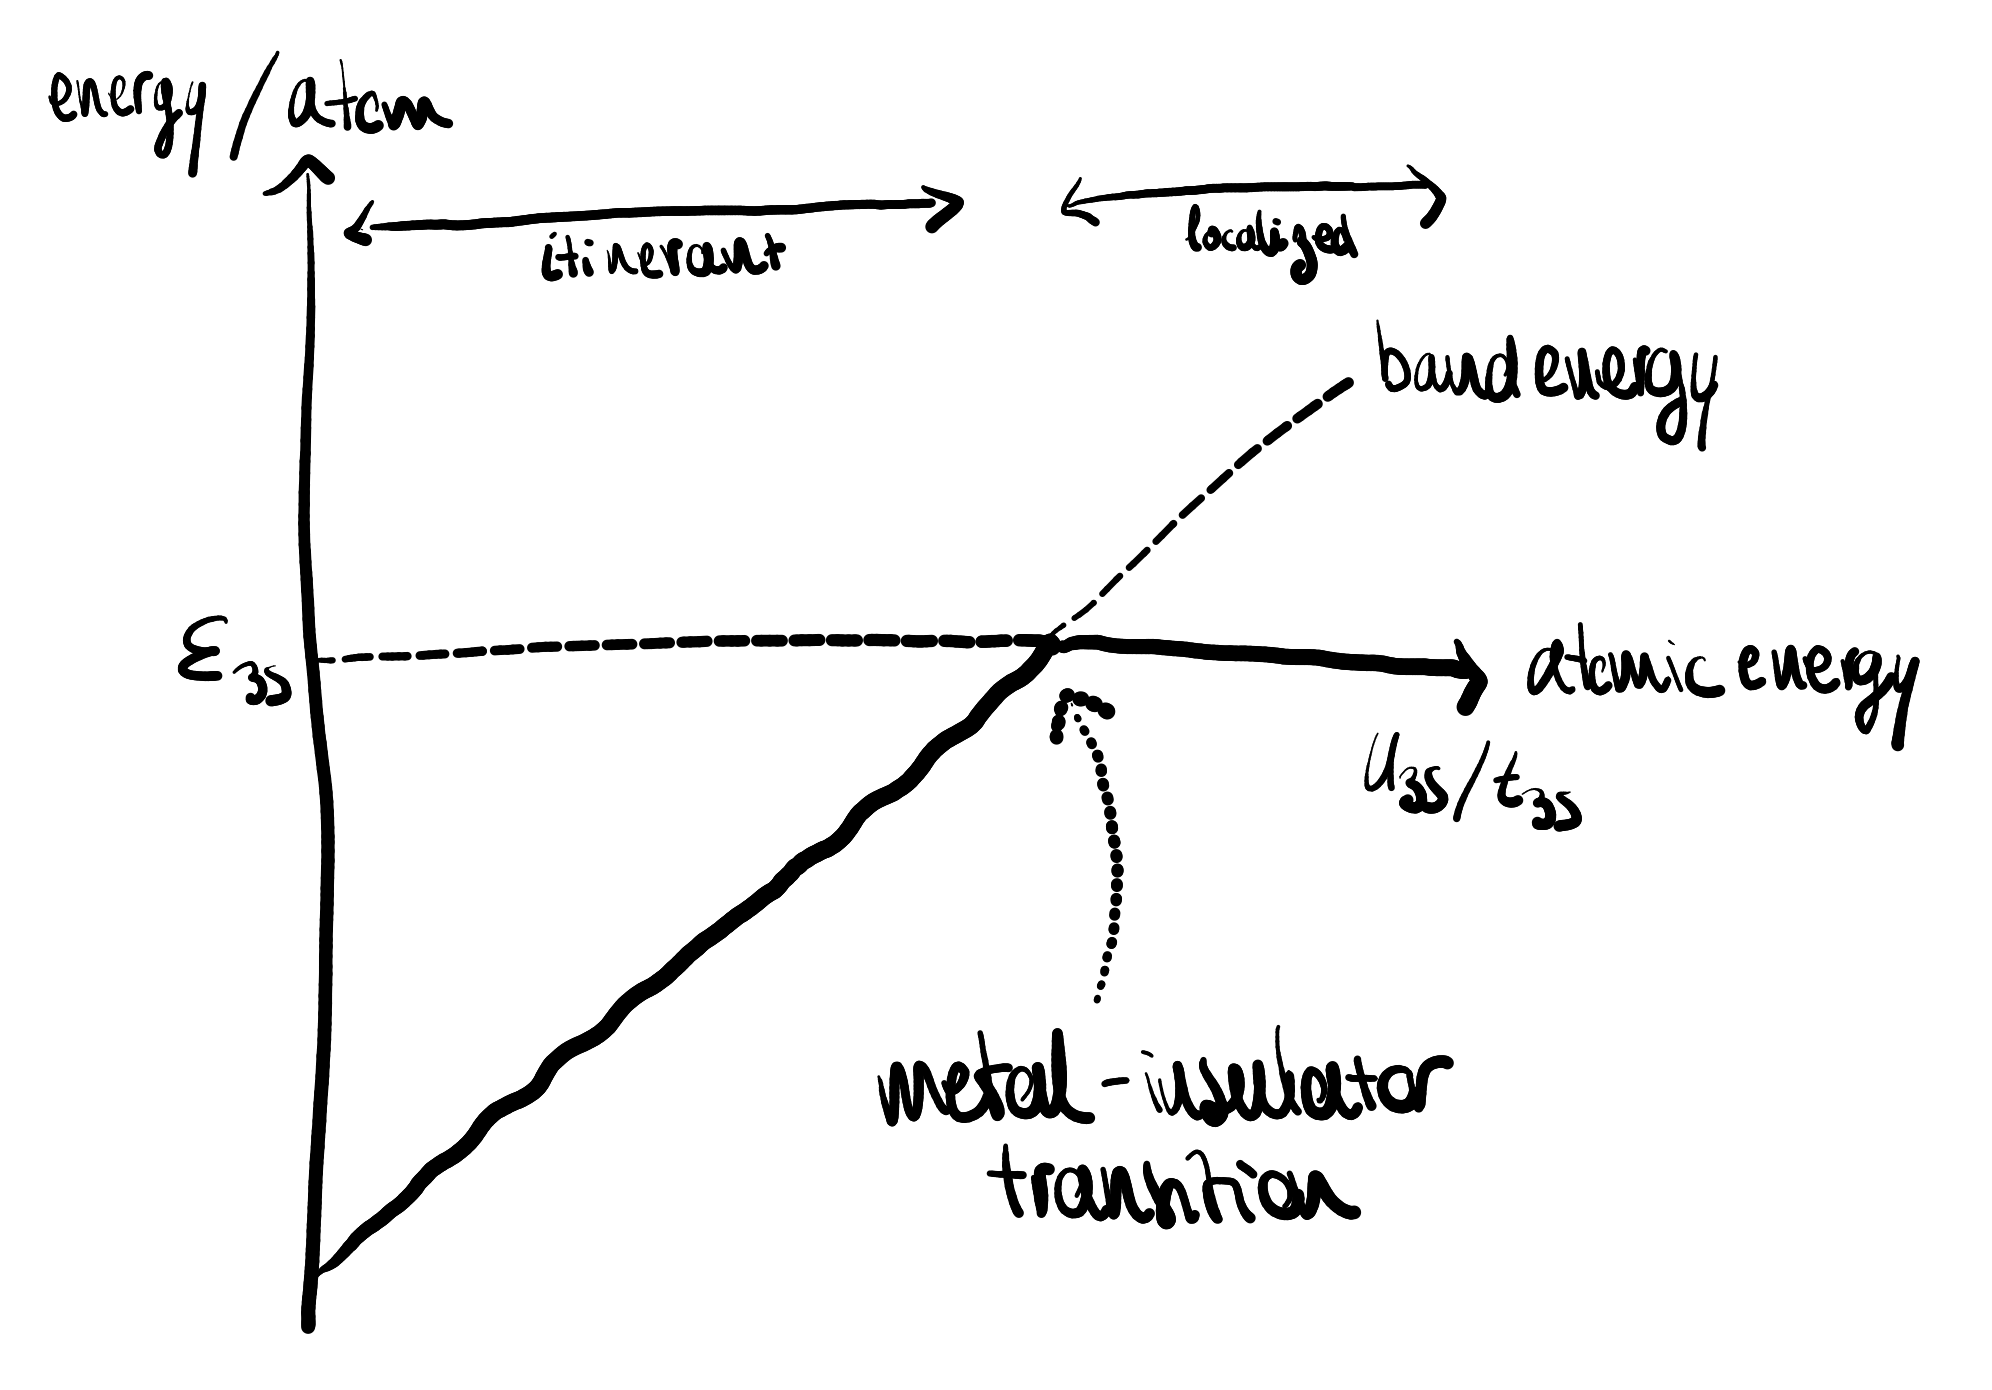 energy / atom
itinerant
localized
band energy
ε3s
atomic energy
U3s/t3s
metal-insulator
transition